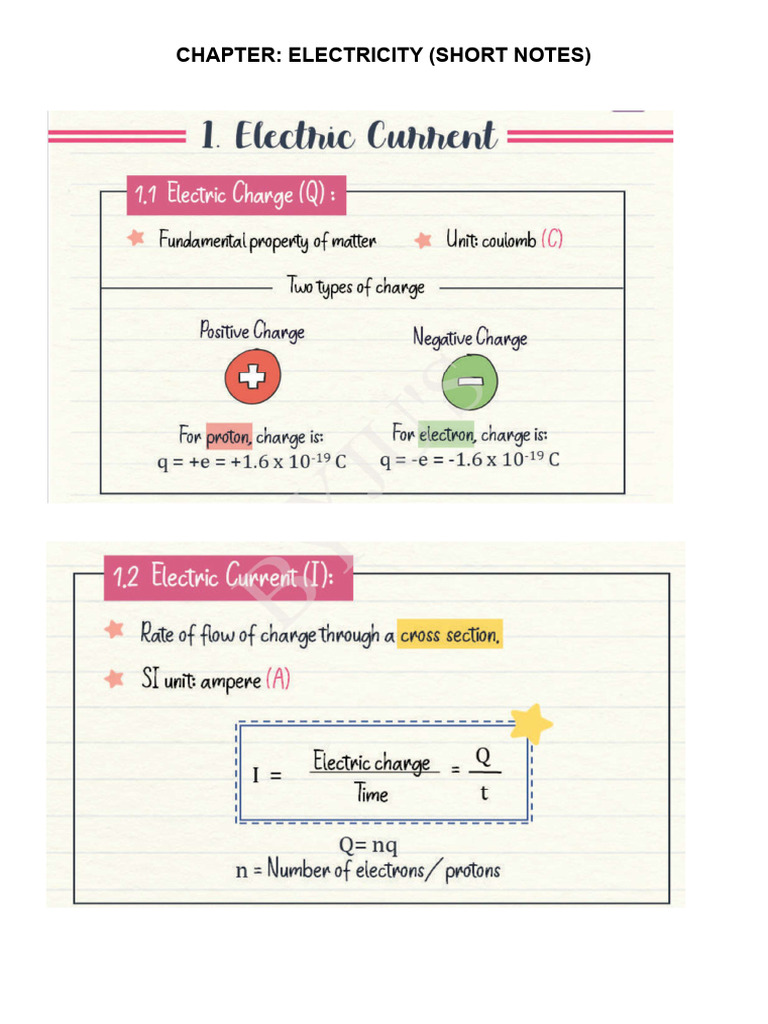 CHAPTER: ELECTRICITY (SHORT NOTES)
1. Electric Current
1.1 Electric Charge (Q) :
Fundamental property of matter
Unit: coulomb (C)
Two types of charge
Positive Charge
Negative Charge
+
−
For proton, charge is:
q = +e = +1.6 x 10⁻¹⁹ C
For electron, charge is:
q = -e = -1.6 x 10⁻¹⁹ C
BYJU'S
1.2 Electric Current (I):
Rate of flow of charge through a cross section.
SI unit: ampere (A)
I = Electric charge / Time = Q / t
Q= nq
n = Number of electrons/ protons